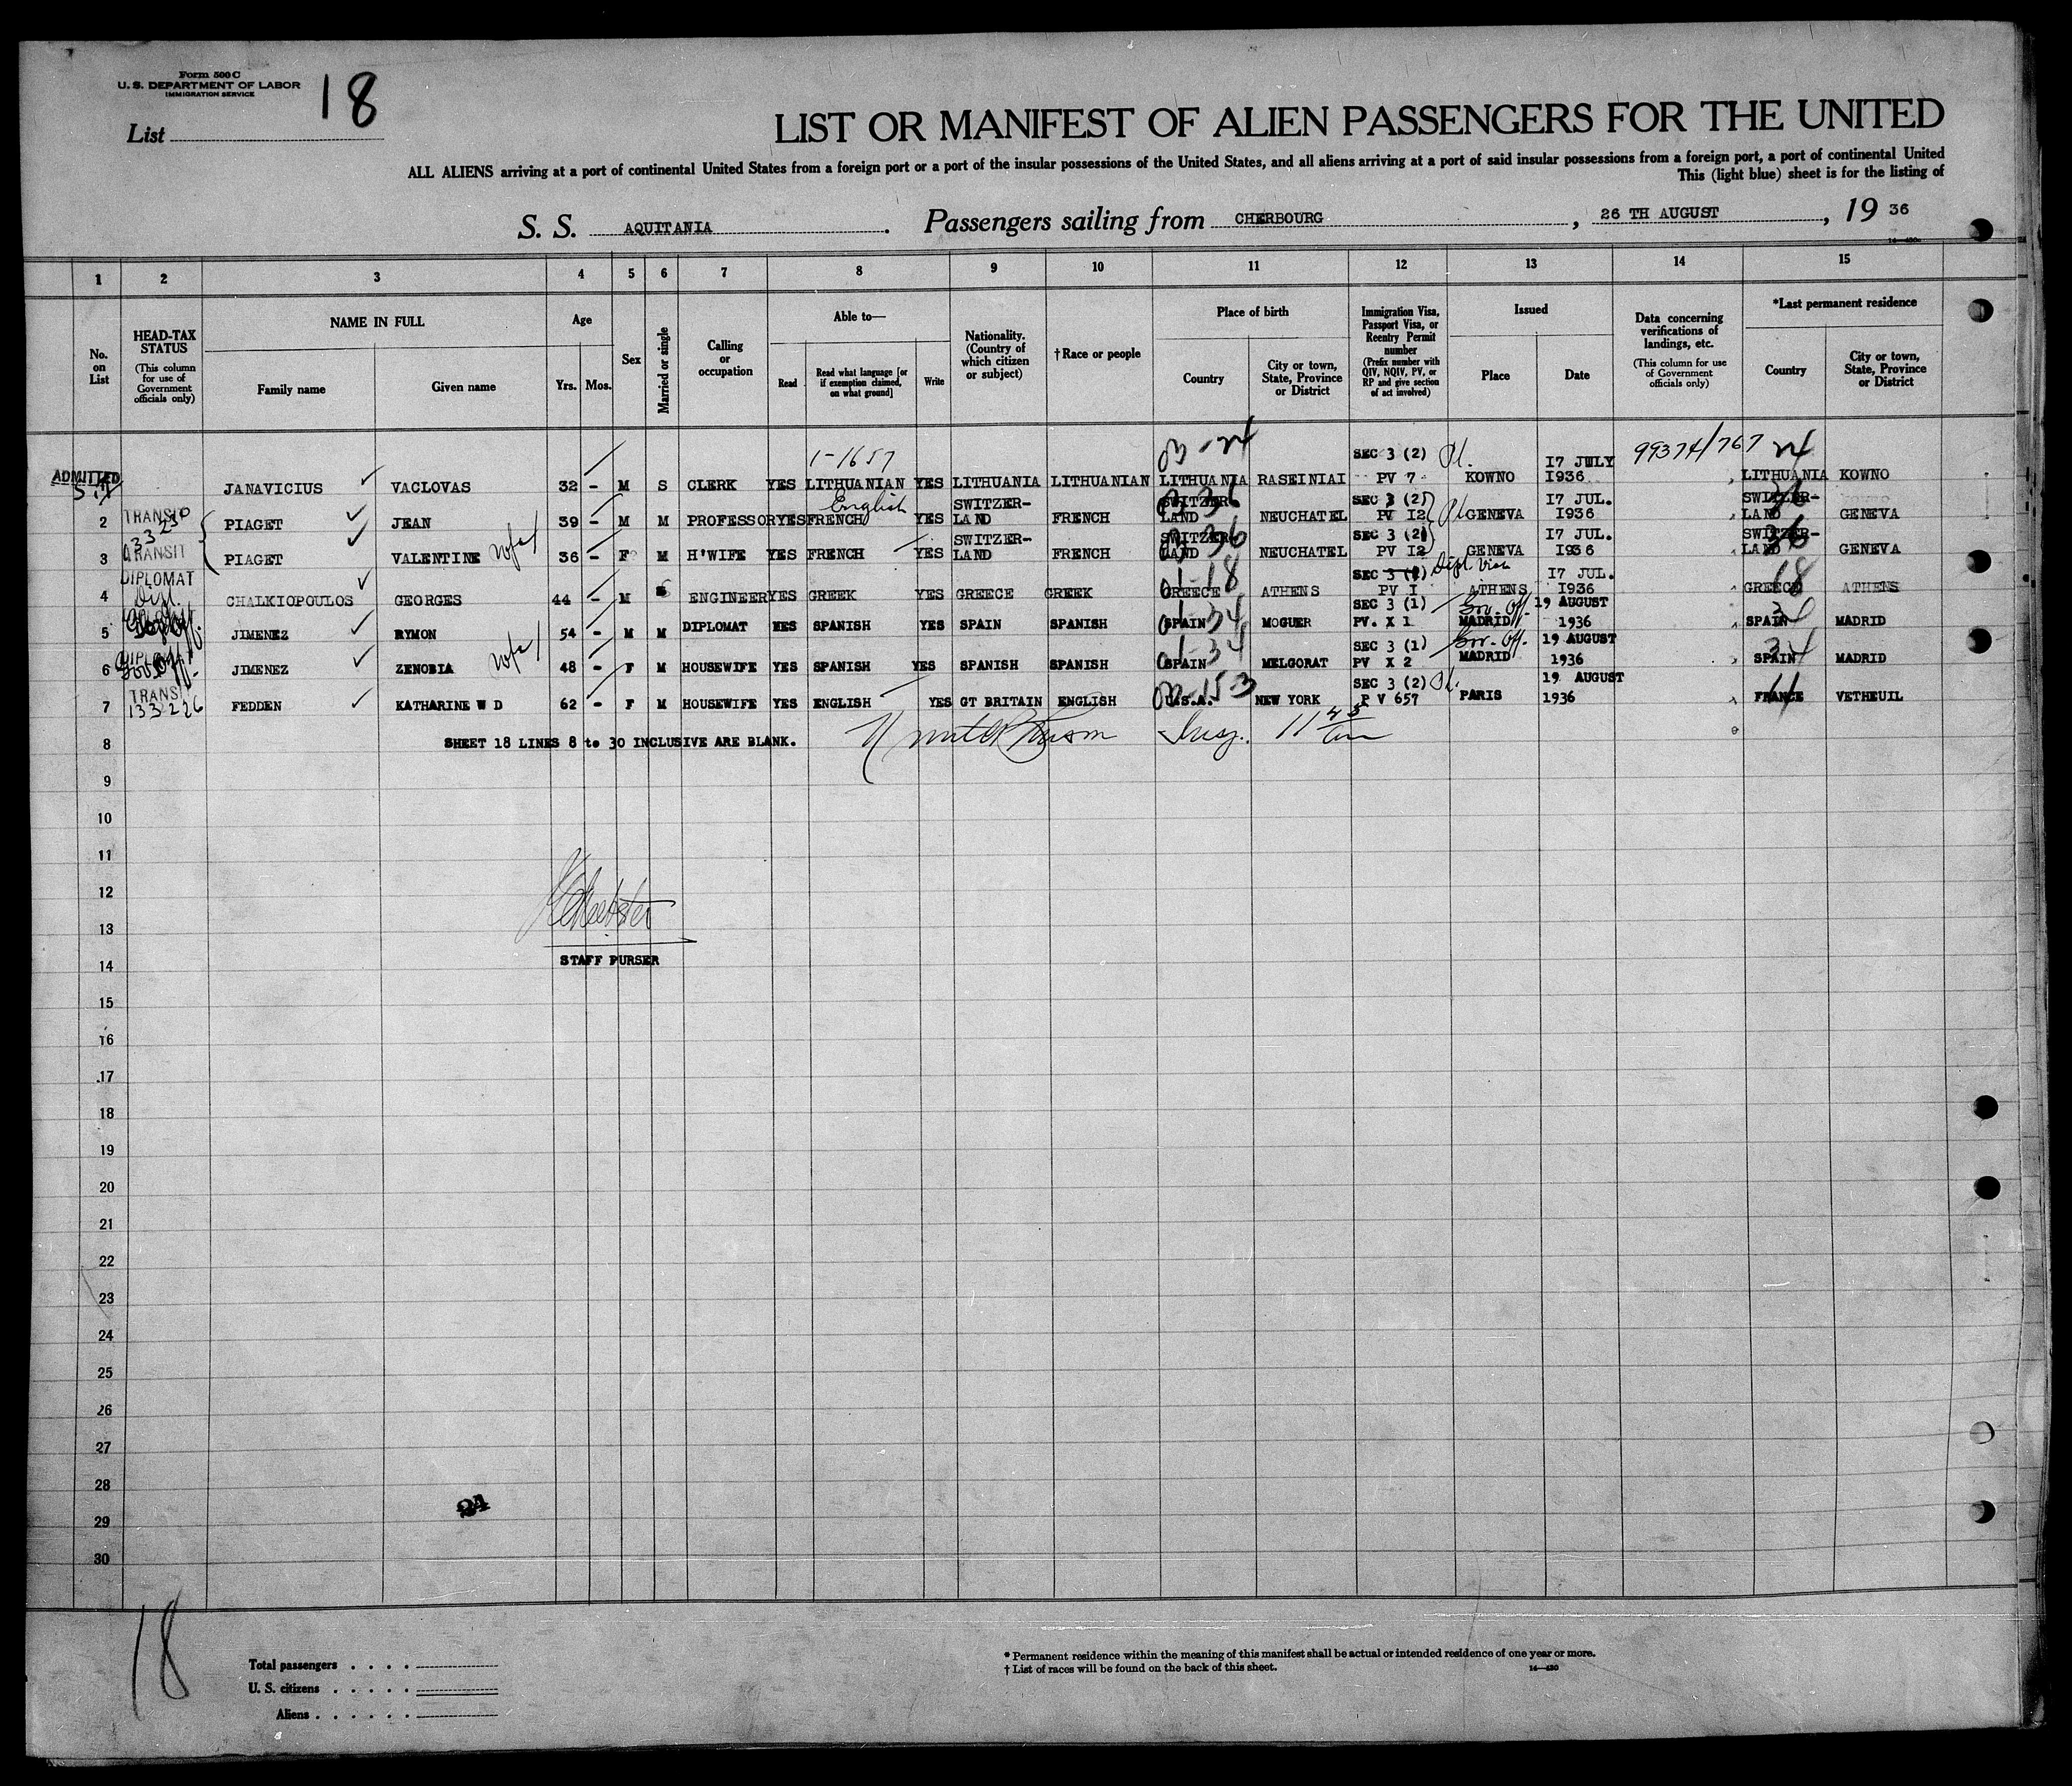 Form 500 C
U. S. DEPARTMENT OF LABOR
IMMIGRATION SERVICE
List 18
LIST OR MANIFEST OF ALIEN PASSENGERS FOR THE UNITED
ALL ALIENS arriving at a port of continental United States from a foreign port or a port of the insular possessions of the United States, and all aliens arriving at a port of said insular possessions from a foreign port, a port of continental United
This (light blue) sheet is for the listing of
S. S. AQUITANIA. Passengers sailing from CHERBOURG, 26 TH AUGUST, 19 36
1 2 3 4 5 6 7 8 9 10 11 12 13 14 15
No. on List
HEAD-TAX STATUS (This column for use of Government officials only)
NAME IN FULL
Family name
Given name
Age
Yrs. Mos.
Sex
Married or single
Calling or occupation
Able to—
Read
Read what language [or if exemption claimed, on what ground]
Write
Nationality. (Country of which citizen or subject)
†Race or people
Place of birth
Country
City or town, State, Province or District
Immigration Visa, Passport Visa, or Reentry Permit number (Prefix number with QIV, NQIV, PV, or RP and give section of act involved)
Issued
Place
Date
Data concerning verifications of landings, etc. (This column for use of Government officials only)
*Last permanent residence
Country
City or town, State, Province or District
1-1657 03-24 99374/767 24
ADMITTED JANAVICIUS VACLOVAS 32 - M S CLERK YES LITHUANIAN YES LITHUANIA LITHUANIAN LITHUANIA RASEINIAI SEC 3 (2) PV 7 KOWNO 17 JULY 1936 LITHUANIA KOWNO
2 TRANSIT PIAGET JEAN 39 - M M PROFESSOR YES FRENCH English YES SWITZER-LAND FRENCH SWITZER-LAND NEUCHATEL SEC 3 (2) PV 12 GENEVA 17 JUL. 1936 SWITZER-LAND GENEVA
3 TRANSIT PIAGET VALENTINE 36 - F M H'WIFE YES FRENCH YES SWITZER-LAND FRENCH SWITZER-LAND NEUCHATEL SEC 3 (2) PV 12 GENEVA 17 JUL. 1936 SWITZER-LAND GENEVA
4 DIPLOMAT Dipl. CHALKIOPOULOS GEORGES 44 - M S ENGINEER YES GREEK YES GREECE GREEK GREECE 01-18 ATHENS SEC 3 (1) PV 1 Dipl Visa ATHENS 17 JUL. 1936 GREECE 18 ATHENS
5 JIMENEZ RYMON 54 - M M DIPLOMAT YES SPANISH YES SPAIN SPANISH SPAIN 34 MOGUER SEC 3 (1) PV. X 1 MADRID 19 AUGUST 1936 SPAIN 34 MADRID
6 JIMENEZ ZENOBIA 48 - F M HOUSEWIFE YES SPANISH YES SPANISH SPANISH SPAIN 34 MELGORAT SEC 3 (1) PV X 2 MADRID 19 AUGUST 1936 SPAIN 34 MADRID
7 TRANSIT 133226 FEDDEN KATHARINE W D 62 - F M HOUSEWIFE YES ENGLISH YES GT BRITAIN ENGLISH U.S.A. NEW YORK SEC 3 (2) P V 657 PARIS 19 AUGUST 1936 FRANCE VETHEUIL
8 SHEET 18 LINES 8 to 30 INCLUSIVE ARE BLANK. Insp.
9
10
11
12
13
STAFF PURSER
14
15
16
17
18
19
20
21
22
23
24
25
26
27
28
24
29
30
18
Total passengers . . . .
U. S. citizens . . . . .
Aliens . . . . . .
* Permanent residence within the meaning of this manifest shall be actual or intended residence of one year or more.
† List of races will be found on the back of this sheet.
14—430